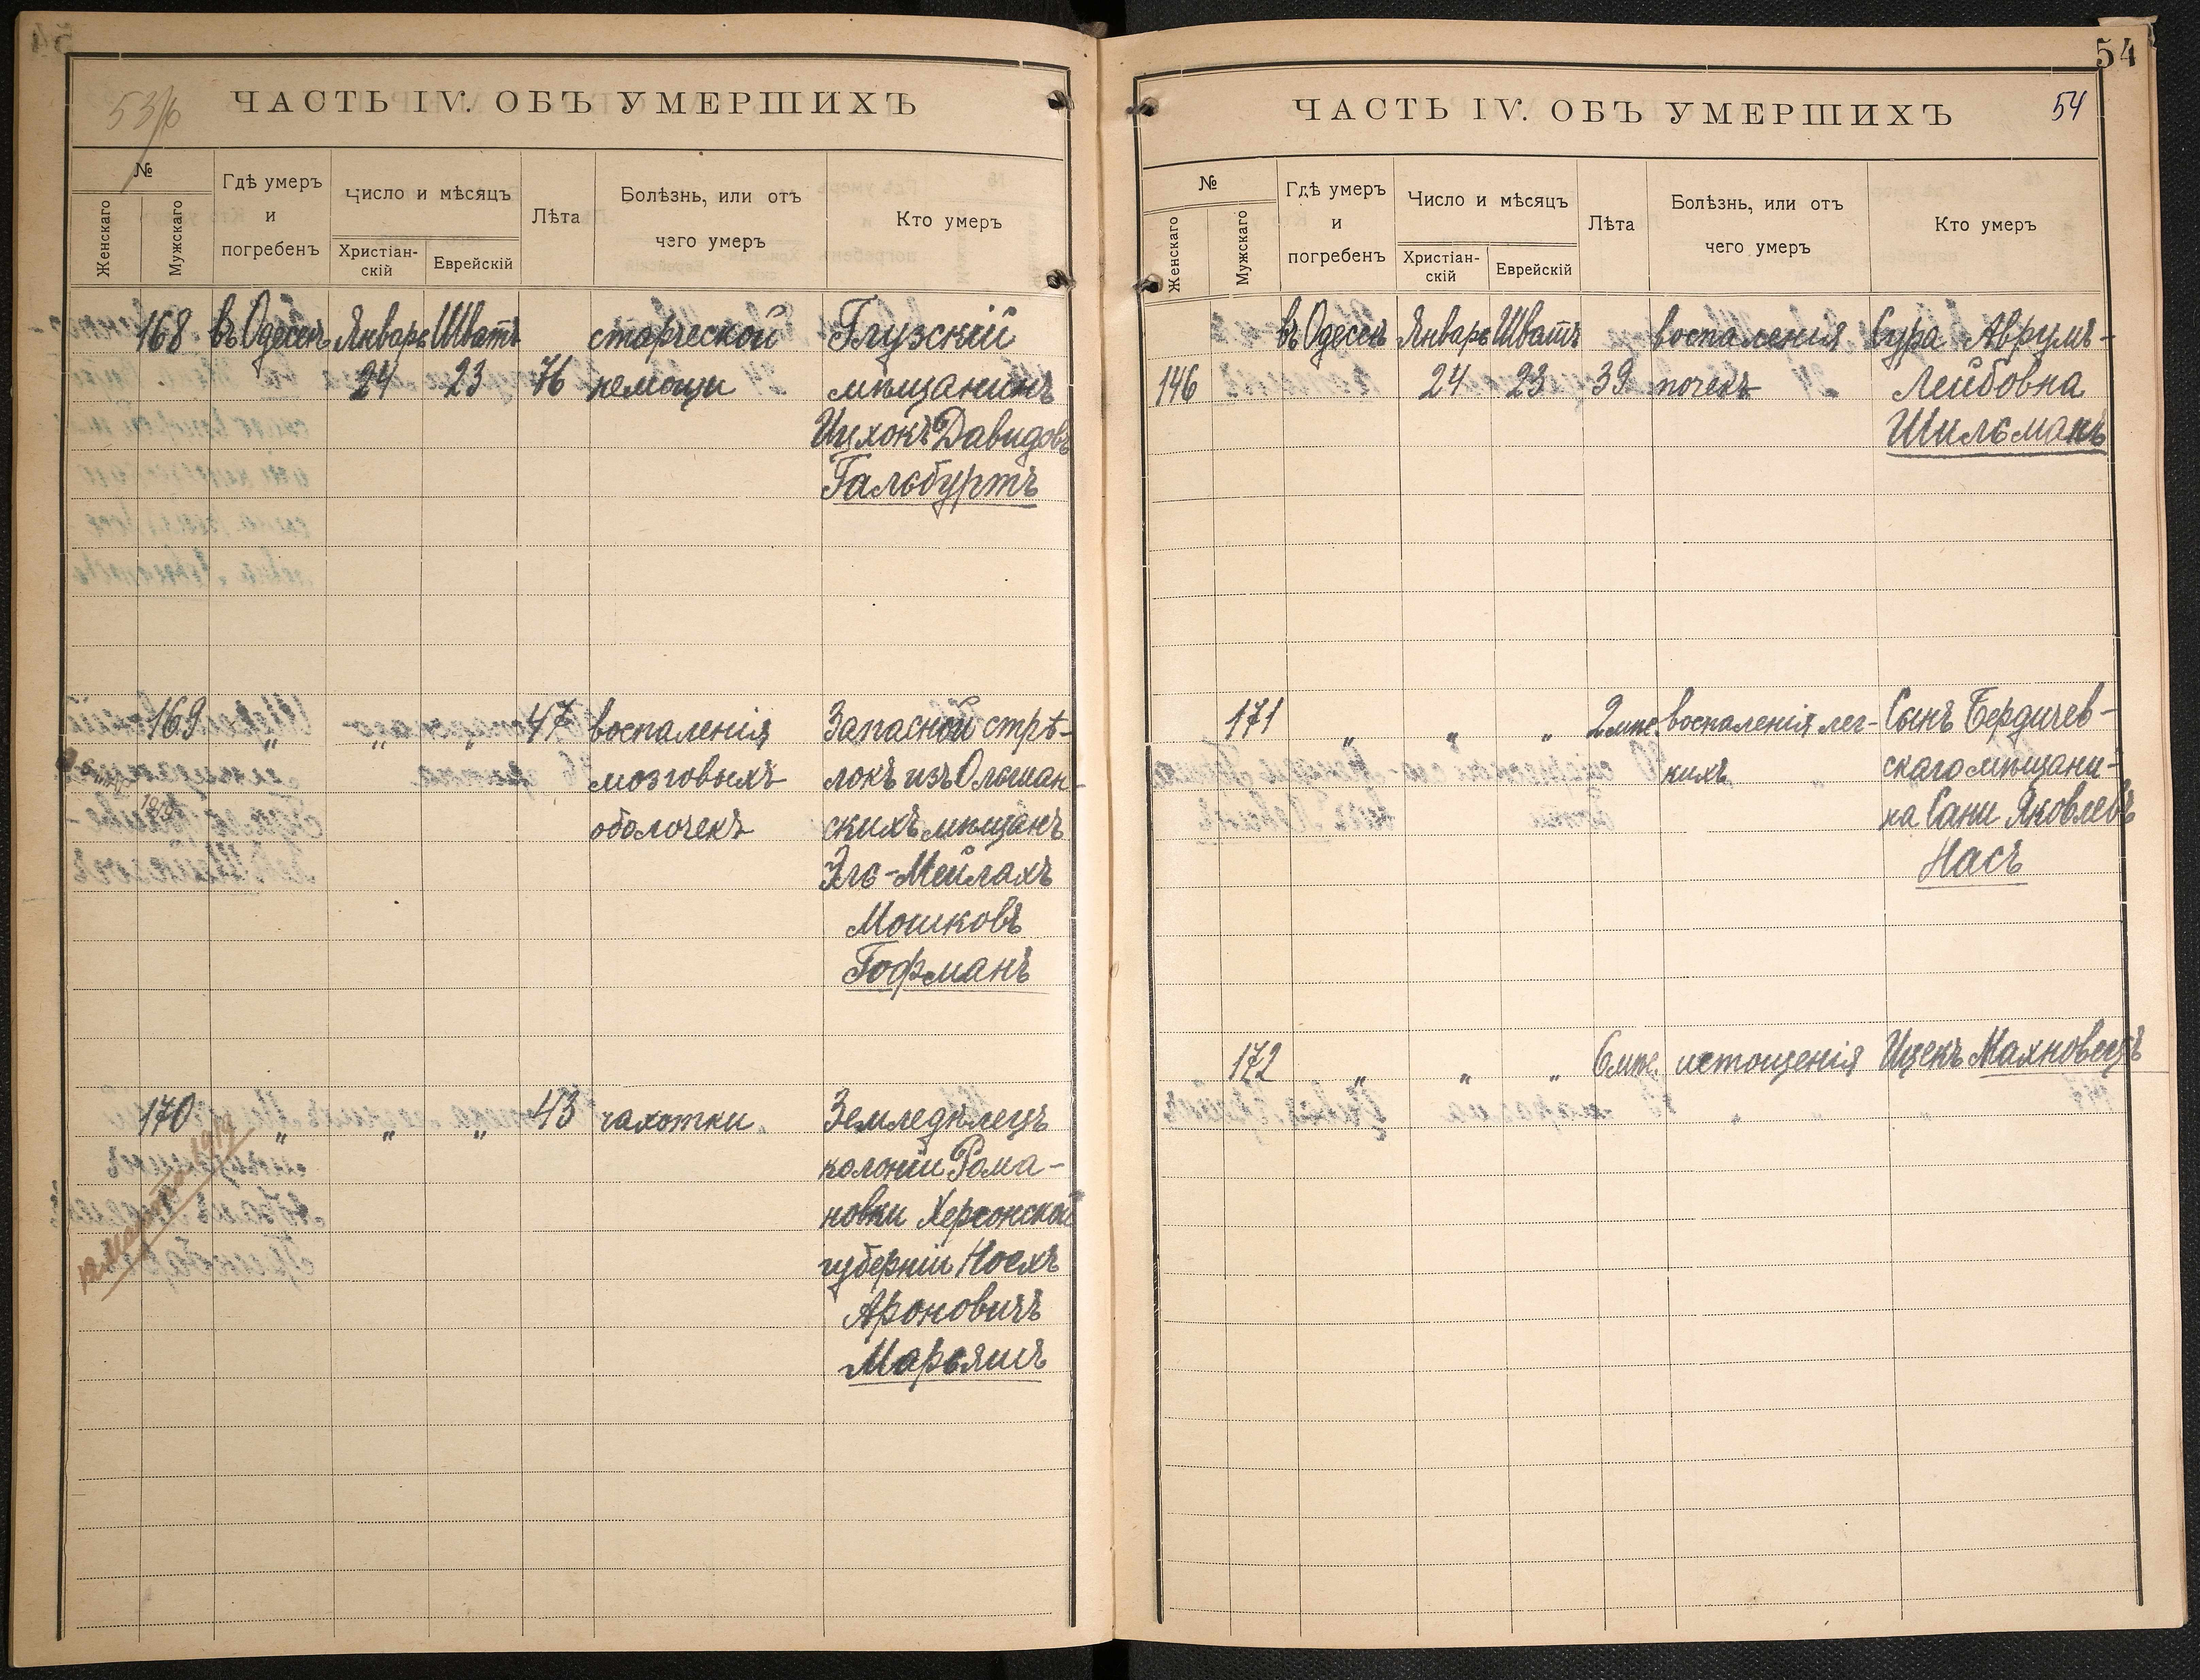 53/б
ЧАСТЬ IV. ОБЪ УМЕРШИХЪ
№
Женскаго
Мужскаго
Гдѣ умеръ
и
погребенъ
Число и мѣсяцъ
Христіан-
скій
Еврейскій
Лѣта
Болѣзнь, или отъ
чего умеръ
Кто умеръ
168 въ Одессѣ Январь Шватъ старческой Глузскій
24 23 76 немощи мѣщанинъ
Ицхокъ Давидовъ
Гальбуртъ
169 „ „ „ 47 воспаленія Запасной стрѣ-
мозговыхъ локъ изъ Ольшан-
оболочекъ скихъ мѣщанъ
Эль-Мейлахъ
Мошковъ
Гофманъ
170 „ „ „ 43 чахотки Земледѣлецъ
колоніи Рома-
новки Херсонской
губерніи Ноехъ
Ароновичъ
Марьяшъ
54
ЧАСТЬ IV. ОБЪ УМЕРШИХЪ
54
№
Женскаго
Мужскаго
Гдѣ умеръ
и
погребенъ
Число и мѣсяцъ
Христіан-
скій
Еврейскій
Лѣта
Болѣзнь, или отъ
чего умеръ
Кто умеръ
въ Одессѣ Январь Шватъ воспаленія Сура Аврумъ-
146 24 23 39 почекъ Лейбовна
Шильманъ
171 „ „ „ 2 мѣс. воспаленія лег- Сынъ Бердичев-
кихъ скаго мѣщани-
на Сани Яковлевъ
Насъ
172 „ „ „ 6 мѣс. истощенія Ицекъ Махновецъ